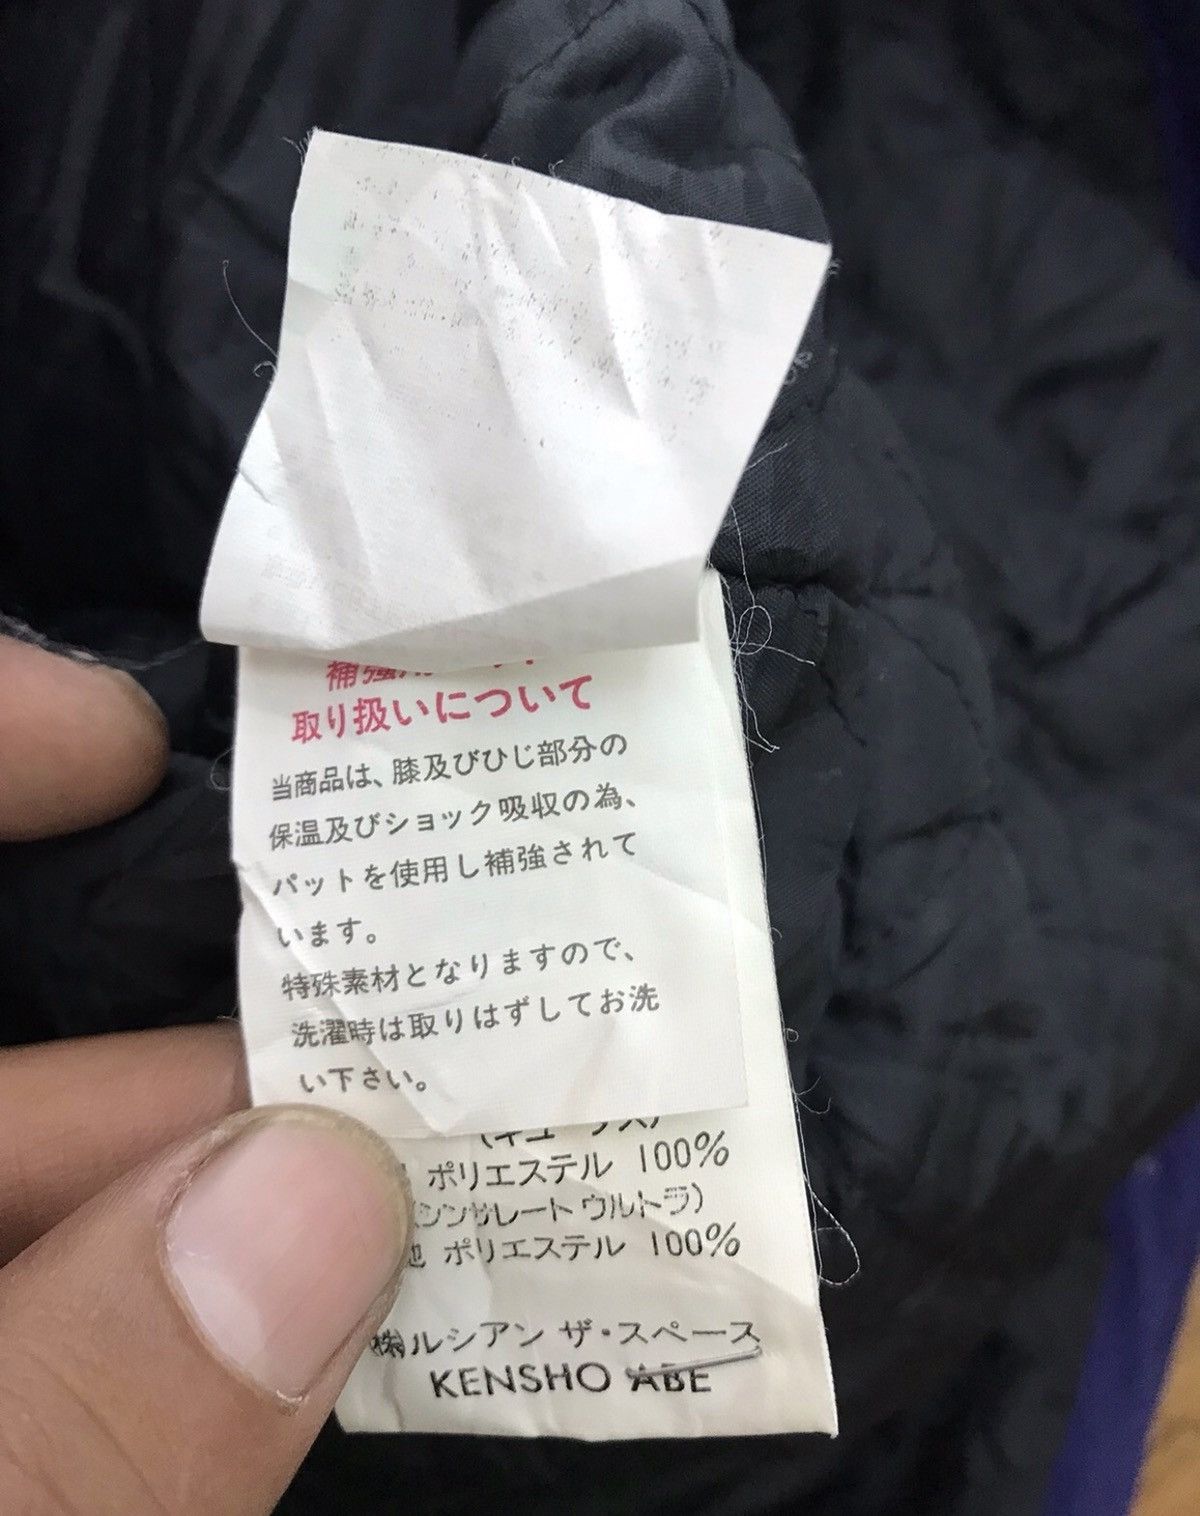 取り扱いについて
当商品は、膝及びひじ部分の
保温及びショック吸収の為、
パットを使用し補強されて
います。
特殊素材となりますので、
洗濯時は取りはずしてお洗
い下さい。
ポリエステル 100%
(シンサレート ウルトラ)
地 ポリエステル 100%
㈱ルシアン ザ・スペース
KENSHO ABE